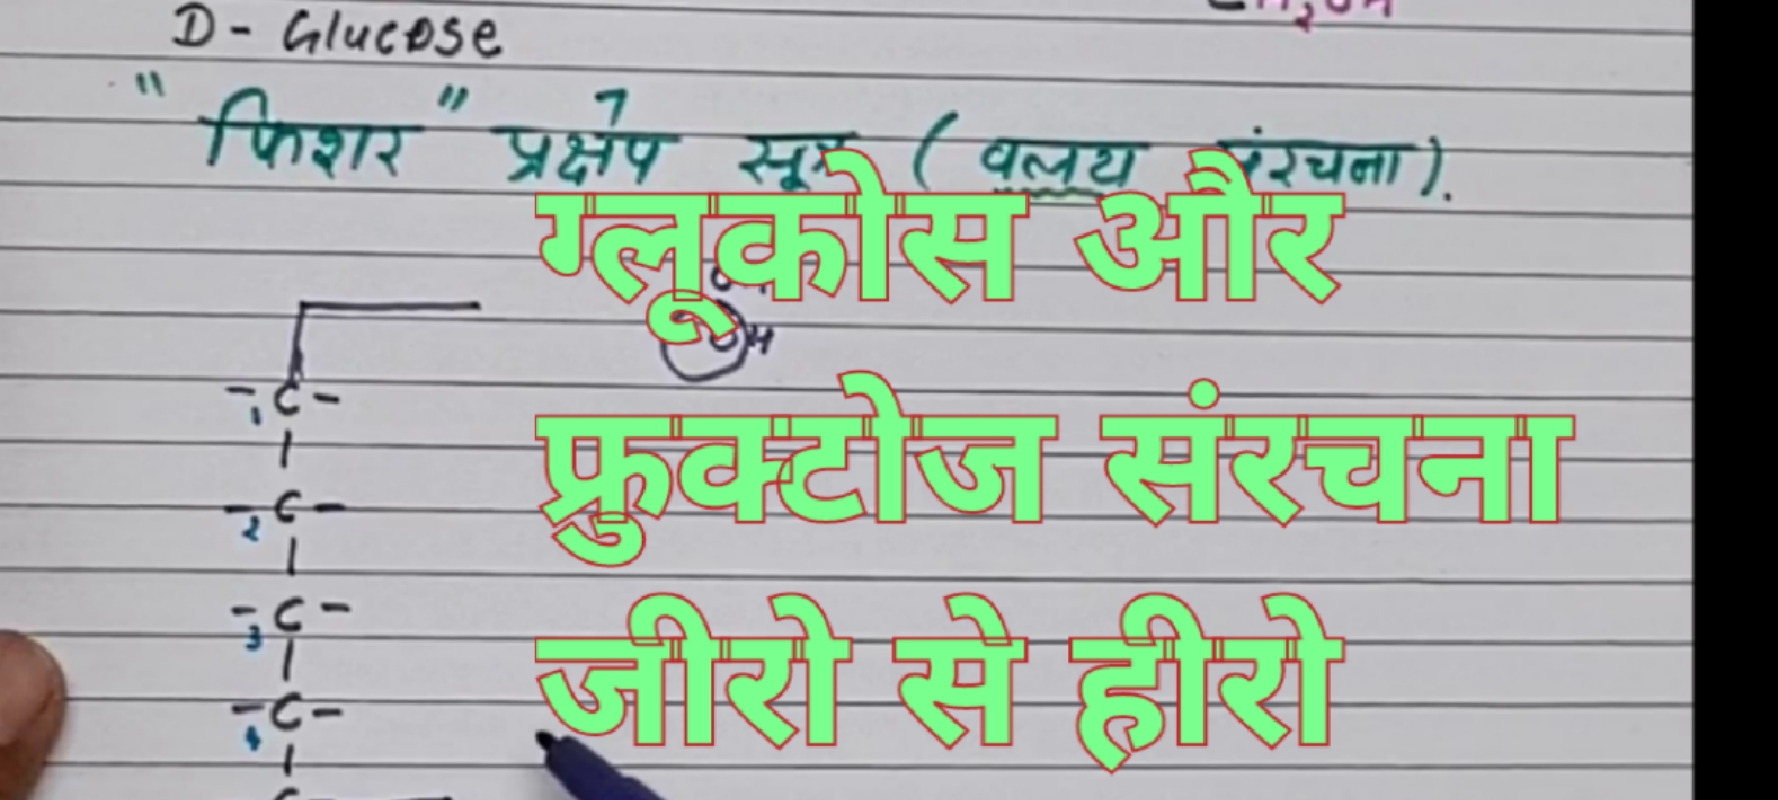 D - Glucose
"फिशर" प्रक्षेप सूत्र ( वलय संरचना ).
ग्लूकोस और
OH
फ्रुक्टोज संरचना
जीरो से हीरो
- C -
1
- C -
2
- C -
3
- C -
4